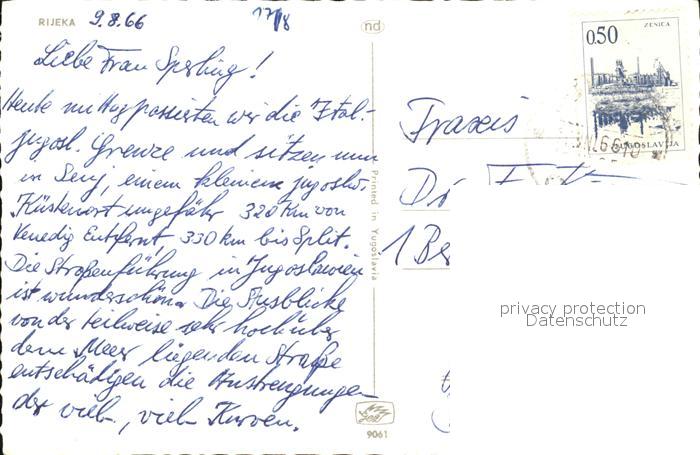 RIJEKA 9.8.66
17/8
nd
Liebe Frau Sperling!
Heute mittag passierten wir die Ital.-
jugosl. Grenze und sitzen nun
in Senj, einem kleinem jugoslw.
Küstenort ungefähr 320 km von
Venedig Entfernt, 330 km bis Split.
Die Straßenführung in Jugoslawien
ist wunderschön. Die Ausblicke
von der teilweise sehr hoch über
dem Meer liegenden Straße
entschädigen die Anstrengungen
der viel, vielen Kurven.
Printed in Yugoslavia
9061
ZENICA
0.50
JUGOSLAVIJA
Praxis
Dr
1 Be
privacy protection
Datenschutz